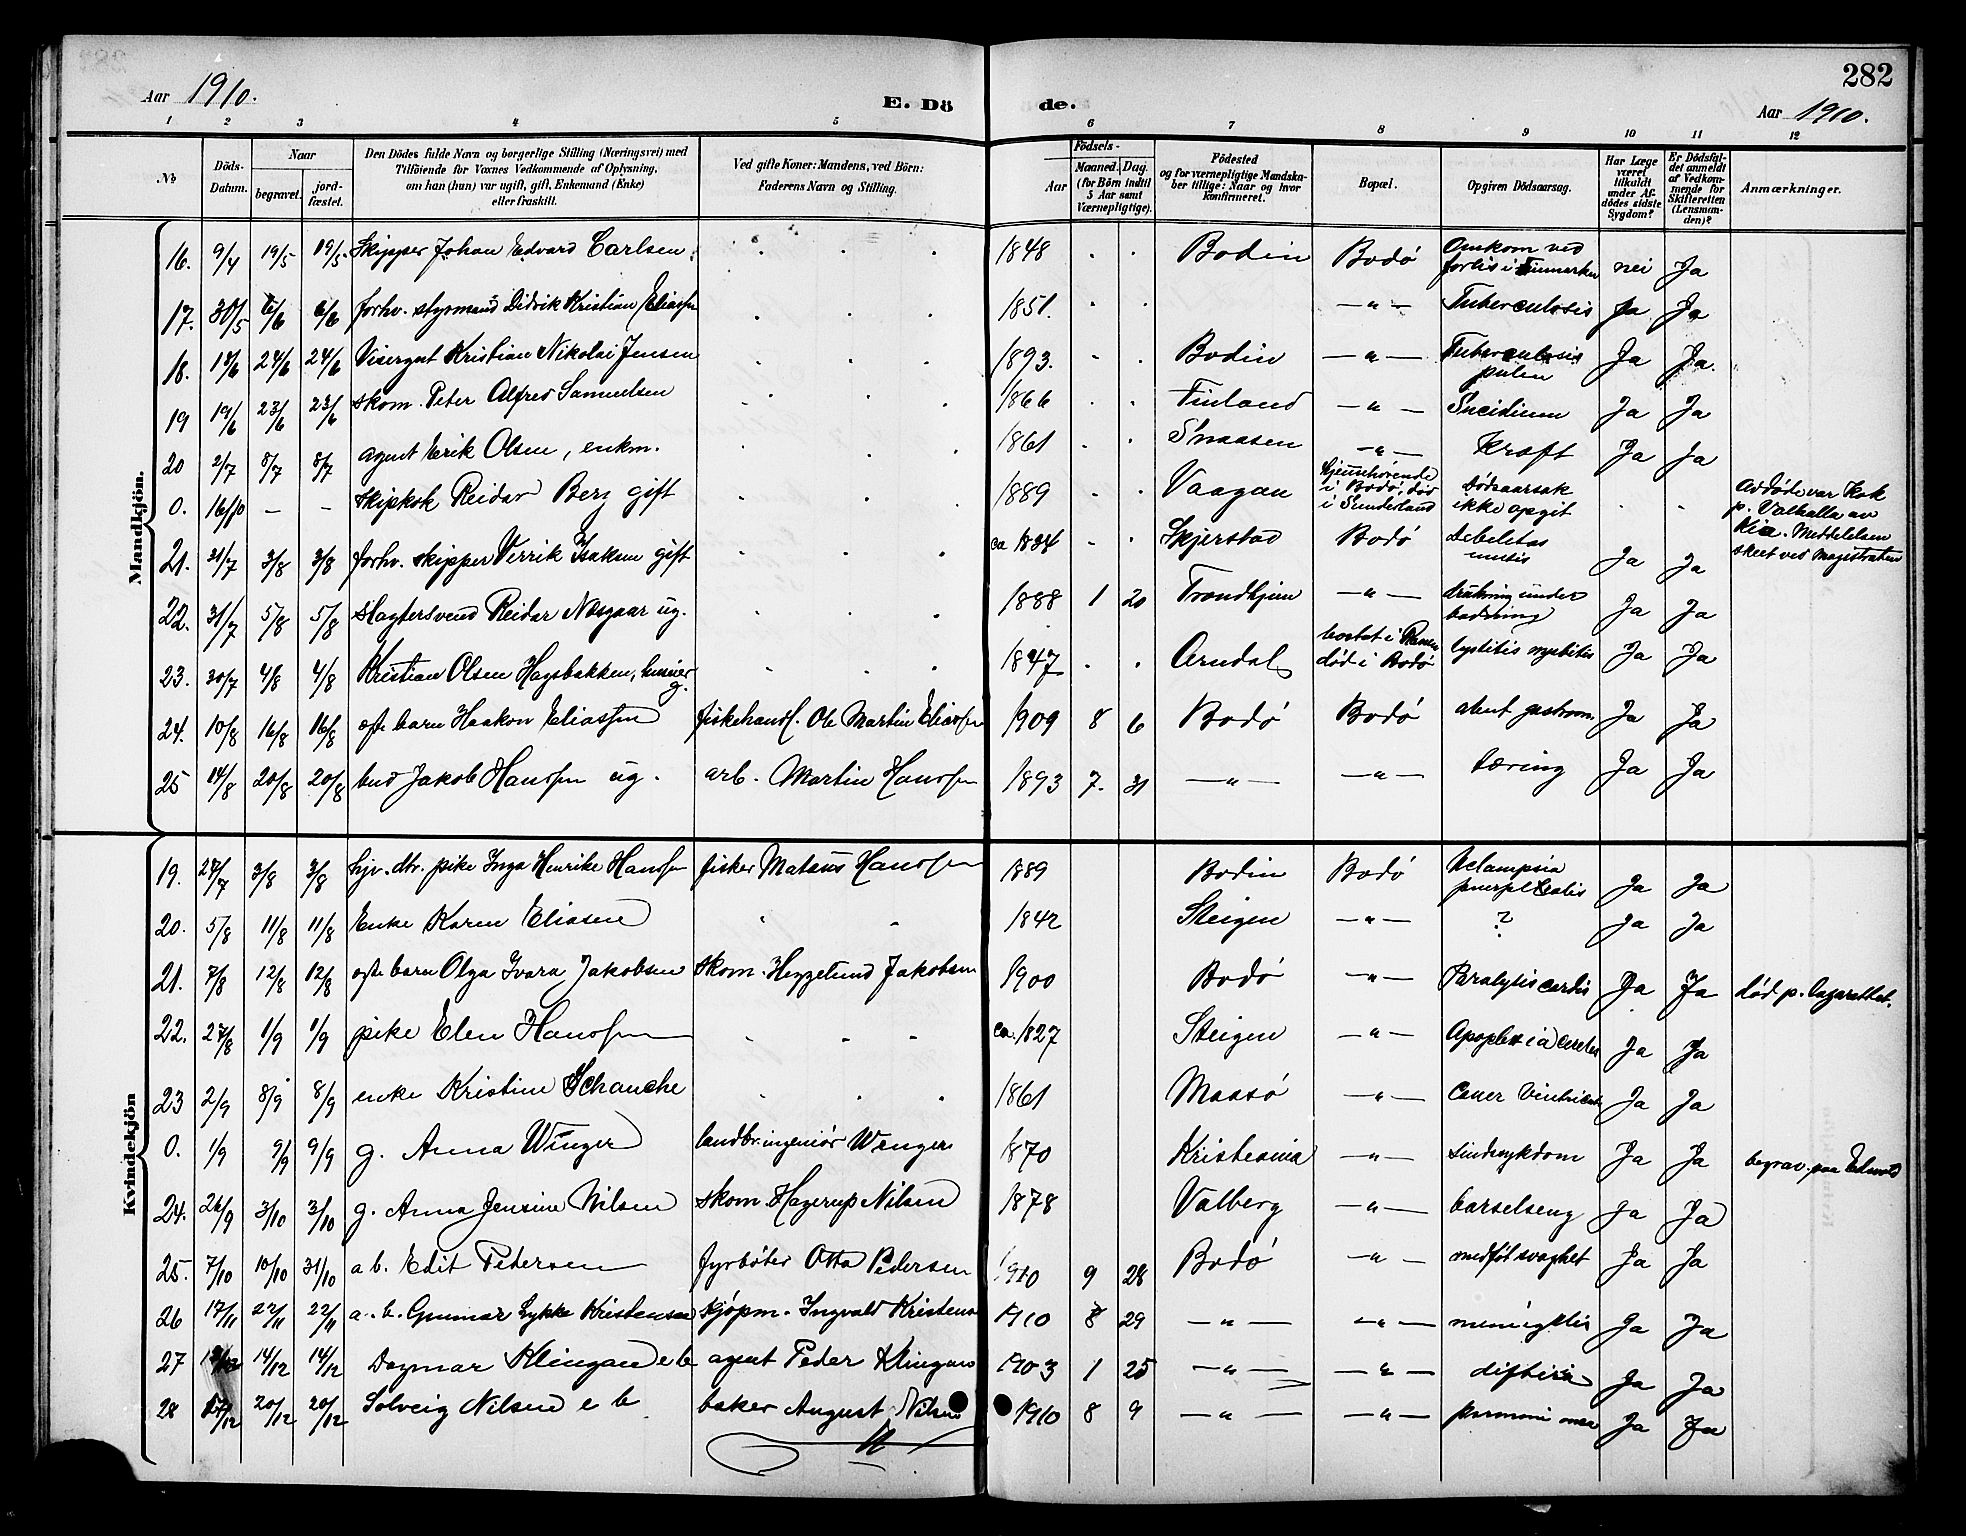 282
Aar 1910.
E. Dö de.
Aar 1910.
1 2 3 4 5 6 7 8 9 10 11 12
No
Döds-Datum.
Naar
begravet.
jord-fæstet.
Den Dödes fulde Navn og borgerlige Stilling (Næringsvei) med
Tilföiende for Voxnes Vedkommende af Oplysning,
om han (hun) var ugift, gift, Enkemand (Enke)
eller fraskilt.
Ved gifte Koner: Mandens, ved Börn:
Faderens Navn og Stilling.
Födsels-
Aar
Maaned. Dag.
(for Börn indtil
5 Aar samt
Værnepligtige).
Födested
og for værnepligtige Mandska-
ber tillige: Naar og hvor
konfirmeret.
Bopæl.
Opgiven Dödsaarsag.
Har Læge
været
tilkaldt
under Af-
dödes sidste
Sygdom?
Er Dödsfal-
det anmeldt
af Vedkom-
mende for
Skifteretten
(Lensman-
den)?
Anmærkninger.
Mandkjön.
16. 9/4 19/5 19/5. Skipper Johan Edvard Carlsen. 1848 Bodin Bodø Omkom ved forlis i Finmarken nei Ja
17. 30/5 6/6 6/6 forhv. styrmand Didrik Kristian Eliassen 1851. —"— Tuberculosis Ja Ja
18. 18/6 24/6 24/6 Visergut Kristian Nikolai Jensen 1893. Bodin —"— Tuberculosis pulm Ja Ja.
19 19/6 23/6 23/6 skom. Peter Alfred Samuelsen 1866 Finland —"— Sucidium Ja Ja
20 2/7 8/7 8/7 agent Erik Olsen, enkm. 1861 Snaasen —"— Kræft Ja Ja
0. 16/10 — — skipkok Reidar Berg gift 1889 Vaagan hjemhørende i Bodø, død i Sunderland Dødsaarsak ikke opgit Avdøde var Kok p. Valhalla av Kra. Meddelelsen skeet ved Magistraten
21. 31/7 3/8 3/8 forhv. skipper Verrik Isaksen gift ca 1834 Skjerstad Bodø debelitas Ja Ja
22. 31/7 5/8 5/8 slagtersvend Reidar Næsgaar ug. 1888 1 20 Trondhjem —"— drukning under badning Ja Ja
23. 30/7 4/8 4/8 Kristian Olsen Hagsbakken, g. 1847 Arndal bosat i død i Bodø Ja Ja
24. 10/8 16/8 16/8 barn Haakon Eliassen fiskehandl. Ole Martin Eliassen 1909 8 6 Bodø Bodø Ja Ja
25 14/8 20/8 20/8 bud Jakob Hanssen ug. arb. Martin Hanssen 1893 7. 31 —"— —"— tæring Ja Ja
Kvindekjön
19. 27/7 3/8 3/8 pike Inga Henrike Hanssen fisker Mataus Hanssen 1889 Bodin Bodø Ja Ja
20. 5/8 11/8 11/8 Enke Karen Eliasen 1842 Steigen —"— ? Ja Ja
21. 7/8 12/8 12/8 barn Olga Ivara Jakobsen skom. Heggelund Jakobsen 1900 Bodø —"— Paralytis cordis Ja Ja død p. lazarettet.
22. 27/8 1/9 1/9 pike Elen Hanssen ca. 1827 Steigen —"— Apoplexia Ja Ja
23 2/9 8/9 8/9 enke Kristine Schanche 1861 Maasø —"— Ja Ja
0. 1/9 9/9 9/9 g. Anna Winger landbr. ingeniør Winger 1870 Kristiania —"— sindsykdom Ja Ja begrav. paa
24. 26/9 3/10 3/10 g. Anna Jensine Nilsen skom. Hagerup Nilsen 1878 Valberg —"— barselseng Ja Ja
25. 7/10 10/10 31/10 a b. Edit Petersen fyrbøter Otto Pedersen 1910 9 28 Bodø —"— medføt svaghet Ja Ja
26 17/11 22/11 22/11 a. b. Gunnar Lykke Kristensen kjøpm. Ingvald Kristensen 1910 8 29 —"— —"— Ja Ja
27 14/12 14/12 Dagmar Klingan e b agent Peder Klingan 1903 1 25 —"— —"— difteri Ja Ja
28 17/12 20/12 20/12 Solveig Nilsen e b baker August Nilsen 1910 8 9 —"— —"— Ja Ja